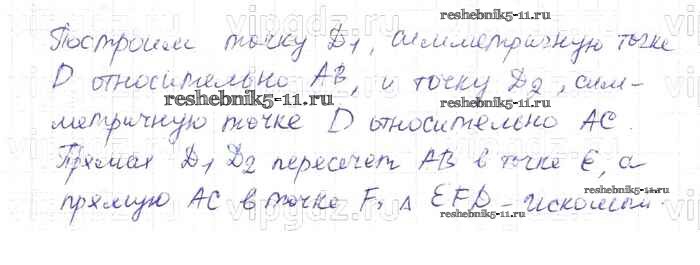 reshebnik5-11.ru
Построим точку D1, симметричную точке
D относительно AB, и точку D2, сим-
reshebnik5-11.ru
reshebnik5-11.ru
метричную точке D относительно AC.
Прямая D1 D2 пересечет AB в точке E, а
прямую AC в точке F, Δ EFD – искомый.
reshebnik5-11.ru
reshebnik5-11.ru